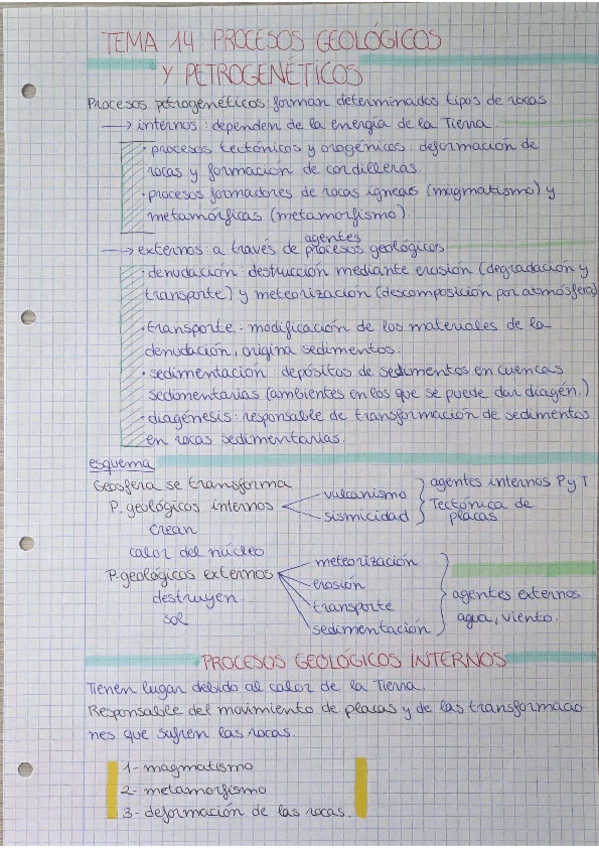 TEMA 14 PROCESOS GEOLÓGICOS
Y PETROGENÉTICOS
Procesos petrogenéticos: forman determinados tipos de rocas
→ internos: dependen de la energía de la Tierra.
· procesos tectónicos y orogénicos: deformación de
rocas y formación de cordilleras.
· procesos formadores de rocas ígneas (magmatismo) y
metamórficas (metamorfismo)
agentes
→ externos: a través de procesos geológicos
· denudación: destrucción mediante erosión (degradación y
transporte) y meteorización (descomposición por atmósfera)
· transporte: modificación de los materiales de la
denudación, origina sedimentos.
· sedimentación: depósitos de sedimentos en cuencas
sedimentarias (ambientes en los que se puede dar diagén.)
· diagénesis: responsable de transformación de sedimentos
en rocas sedimentarias.
esquema
Geosfera se transforma
P. geológicos internos
vulcanismo
sismicidad
agentes internos P y T
Tectónica de
placas
crean
calor del núcleo
P. geológicos externos
meteorización
erosión
transporte
sedimentación
agentes externos
agua, viento.
destruyen
sol
PROCESOS GEOLÓGICOS INTERNOS
Tienen lugar debido al calor de la Tierra.
Responsable del movimiento de placas y de las transformacio-
nes que sufren las rocas.
1- magmatismo
2- metamorfismo
3- deformación de las rocas.